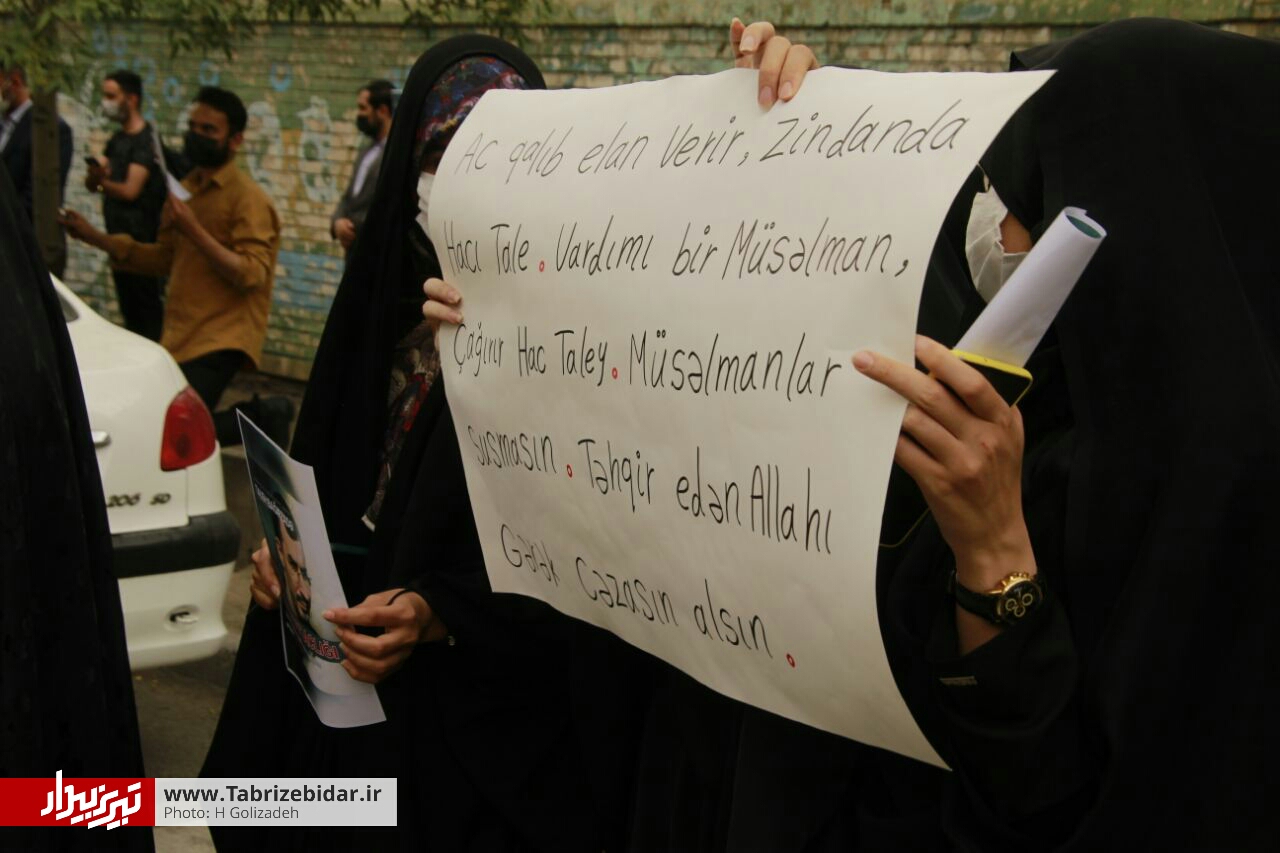 Ac qalıb elan Verir, Zindanda
Hacı Tale. Vardımı bir Müsəlman,
Çağırır Hac Taley. Müsəlmanlar
susmasın. Təhqir edən Allahı
Gərək Cəzasın alsın.
206 SD
تبریزبیدار
www.Tabrizebidar.ir
Photo: H Golizadeh